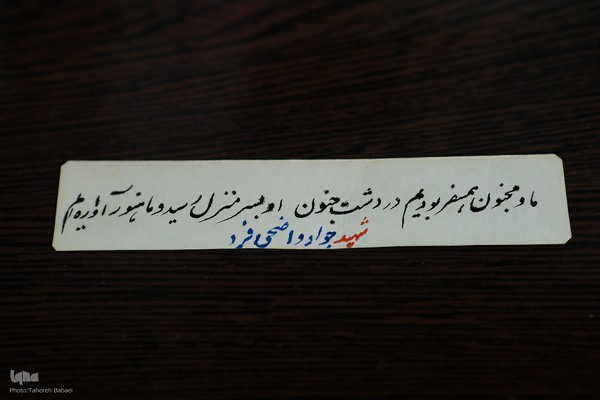 ما و مجنون همسفر بودیم در دشت جنون او بسر منزل رسید و ما هنوز آواره ایم
شهید جواد واضحی فرد
iqna
Photo:Tahereh Babaei